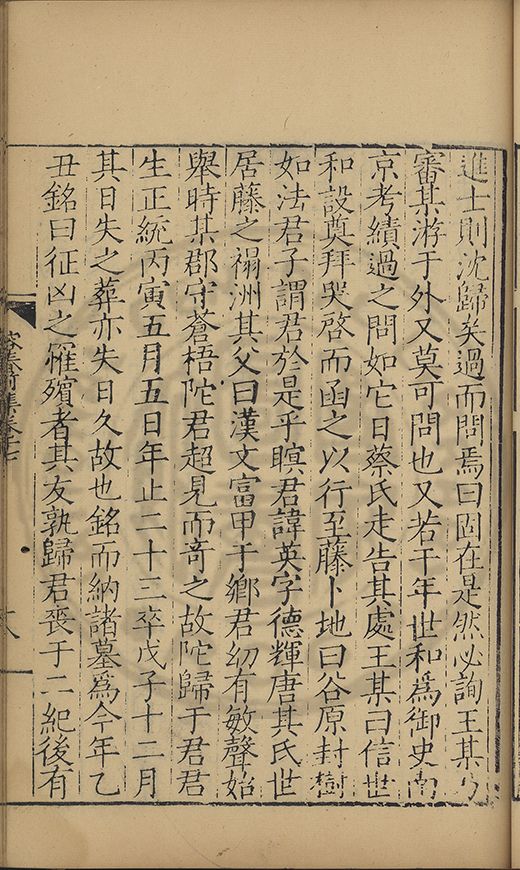 進士則沈歸矣過而問焉曰固在是然必詢王某乃
審某游于外又莫可問也又若干年世和為御史南
京考績過之問如它日蔡氏走告其處王某曰信世
和設奠拜哭啓而函之以行至藤卜地曰谷原封樹
如法君子謂君於是乎瞑君諱英字德輝唐其氏世
居藤之禤洲其父曰漢文富甲于鄉君幼有敏聲始
舉時某郡守蒼梧陀君超見而竒之故陀歸于君君
生正統丙寅五月五日年止二十三卒戊子十二月
其日失之葬亦失日久故也銘而納諸墓爲今年乙
丑銘曰征凶之罹殯者其友孰歸君喪于二紀後有